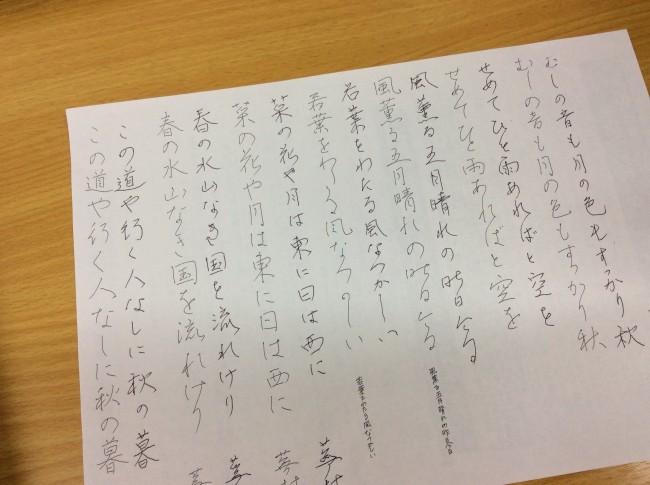 むしの音も月の色もすっかり秋
むしの音も月の色もすっかり秋
せめてひと雨あればと空を
せめてひと雨あればと空を
風薫る五月晴れの昨日今日
風薫る五月晴れの昨日今日
風薫る五月晴れの昨日今日
若葉をわたる風なつかしい
若葉をわたる風なつかしい
若葉をわたる風なつかしい
菜の花や月は東に日は西に 蕪村
菜の花や月は東に日は西に 蕪村
春の水山なき国を流れけり 蕪
春の水山なき国を流れけり 蕪
この道や行く人なしに秋の暮
この道や行く人なしに秋の暮